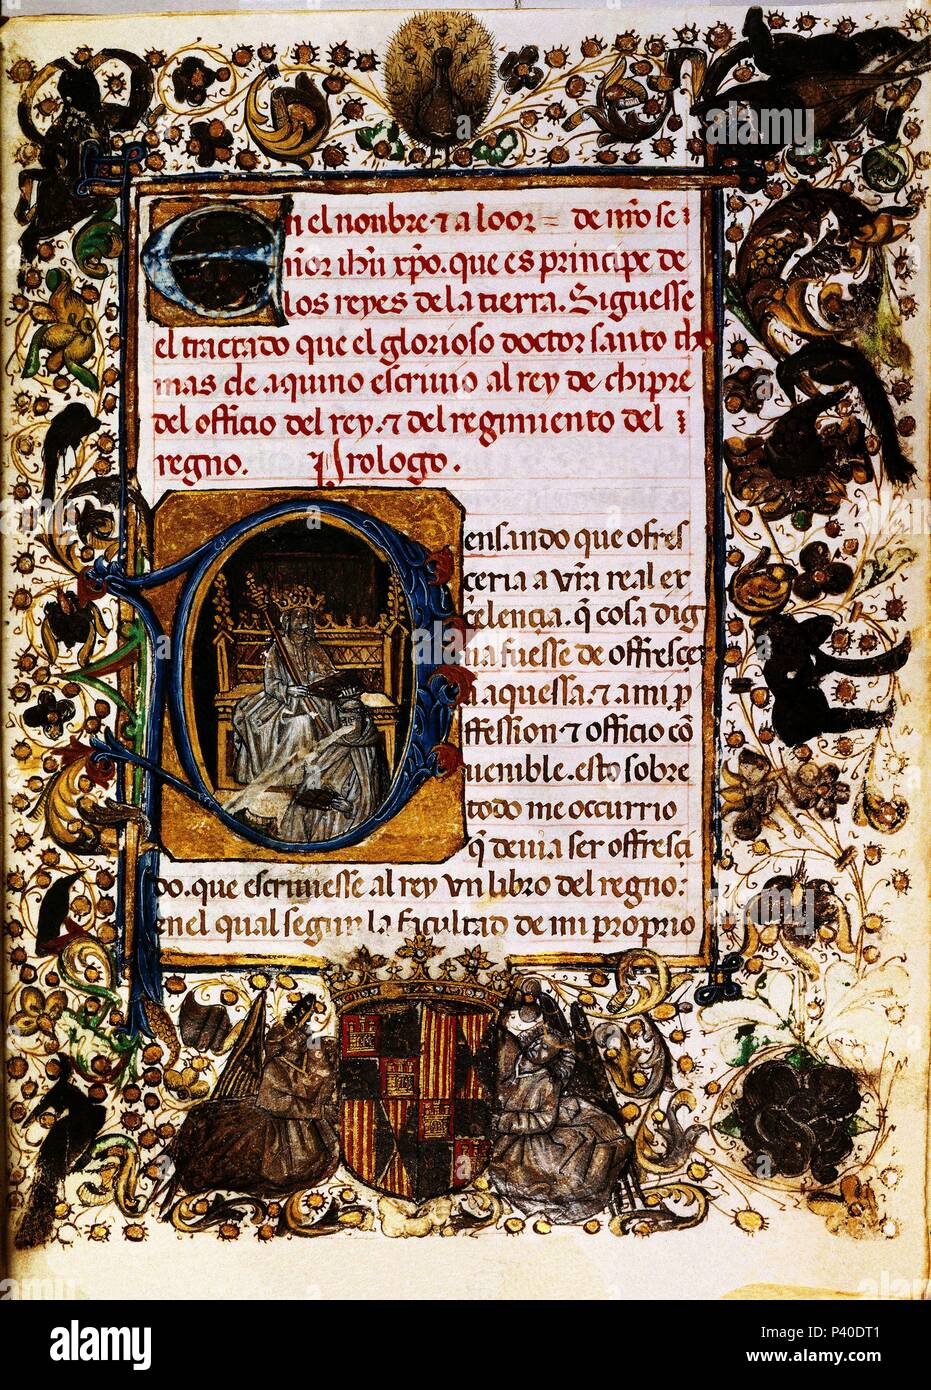 En el nonbre · ⁊ a loor = de nr̃o se
ñor ihũ xp̃o. que es principe de
los reyes de la tierra. Siguesse
el tractado que el glorioso doctor santo tho
mas de aquino escriuio al rey de chipre
del officio del rey. ⁊ del regimiento del
regno. Prologo.
Pensando que ofres
ceria a vr̃a real ex
celencia. q̃ cosa dig
na fuesse de offrescer
a aquessa. ⁊ a mi p
ffession ⁊ officio cõ
uenible. esto sobre
todo me occurrio
q̃ deuia ser offresçi
do. que escriuiesse al rey vn libro del regno:
en el qual segun la facultad de mi proprio
alamy
Image ID: P40DT1
www.alamy.com